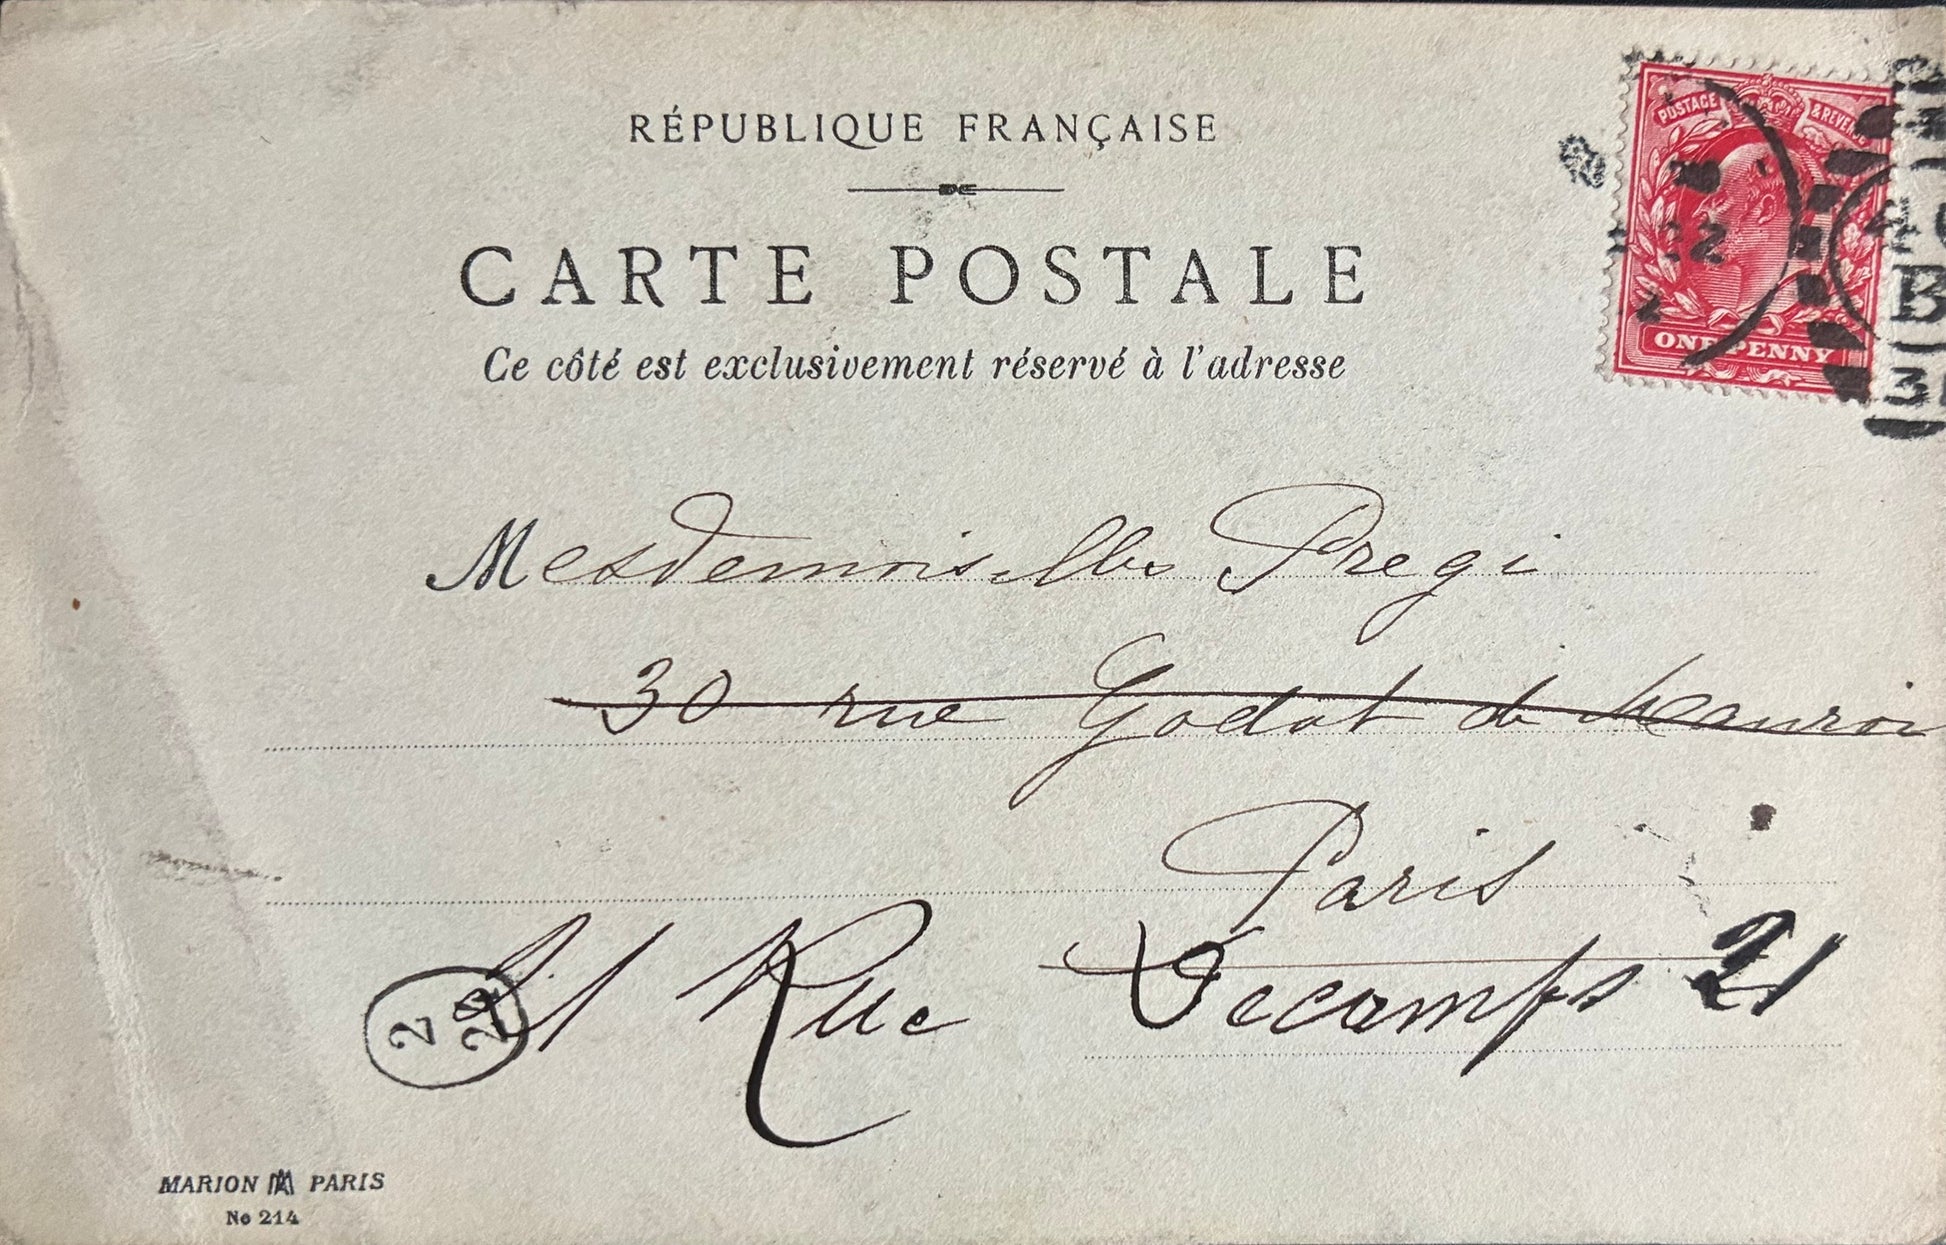 RÉPUBLIQUE FRANÇAISE
CARTE POSTALE
Ce côté est exclusivement réservé à l'adresse
POSTAGE & REVEN
ONE PENNY
12
2
B
31
Mesdemoiselles Pregi
30 rue Godot de Mauroi
Paris
21 Rue Decamps 21
2
MARION PARIS
No 214